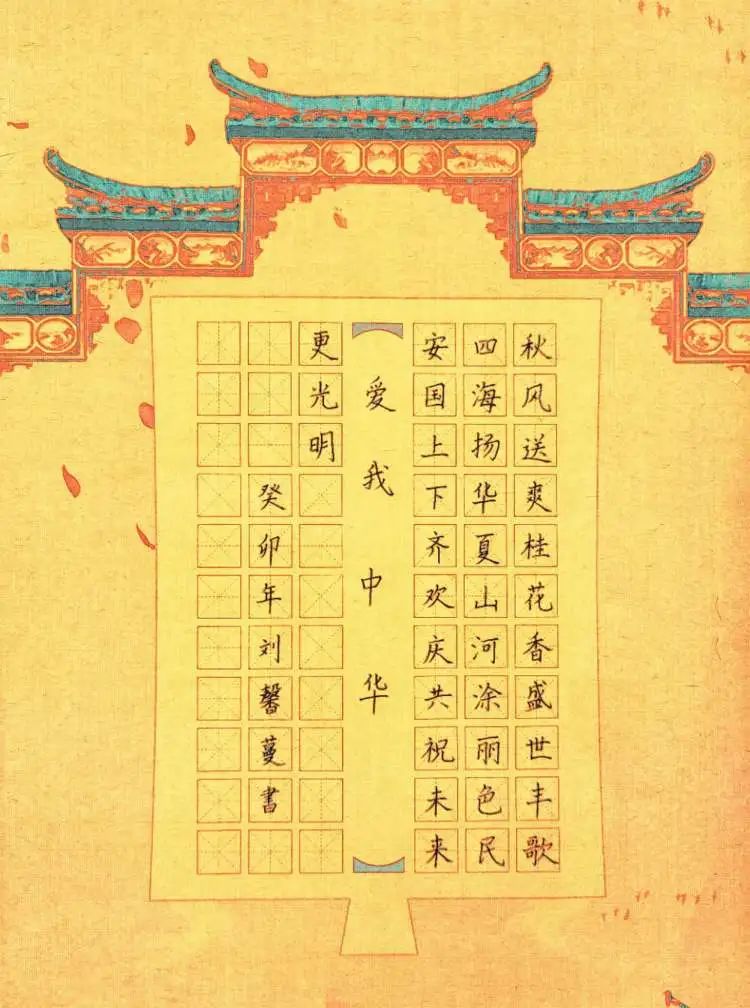 秋风送爽桂花香盛世丰歌
四海扬华夏山河涂丽色民
安国上下齐欢庆共祝未来
爱我中华
更光明
癸卯年刘馨蔓书